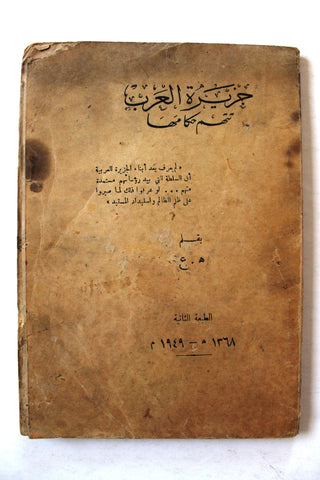 جزيرة العرب
تتهم حكامها
« لم يعرف بعد أبناء الجزيرة العربية
أن السلطة التي بيد رؤسائهم مستمدة
منهم ... لو عرفوا ذلك لما صبروا
على ظلم الظالم واستبداد المستبد »
بقلم
ه . ع
الطبعة الثانية
١٣٦٨ ه – ١٩٤٩ م